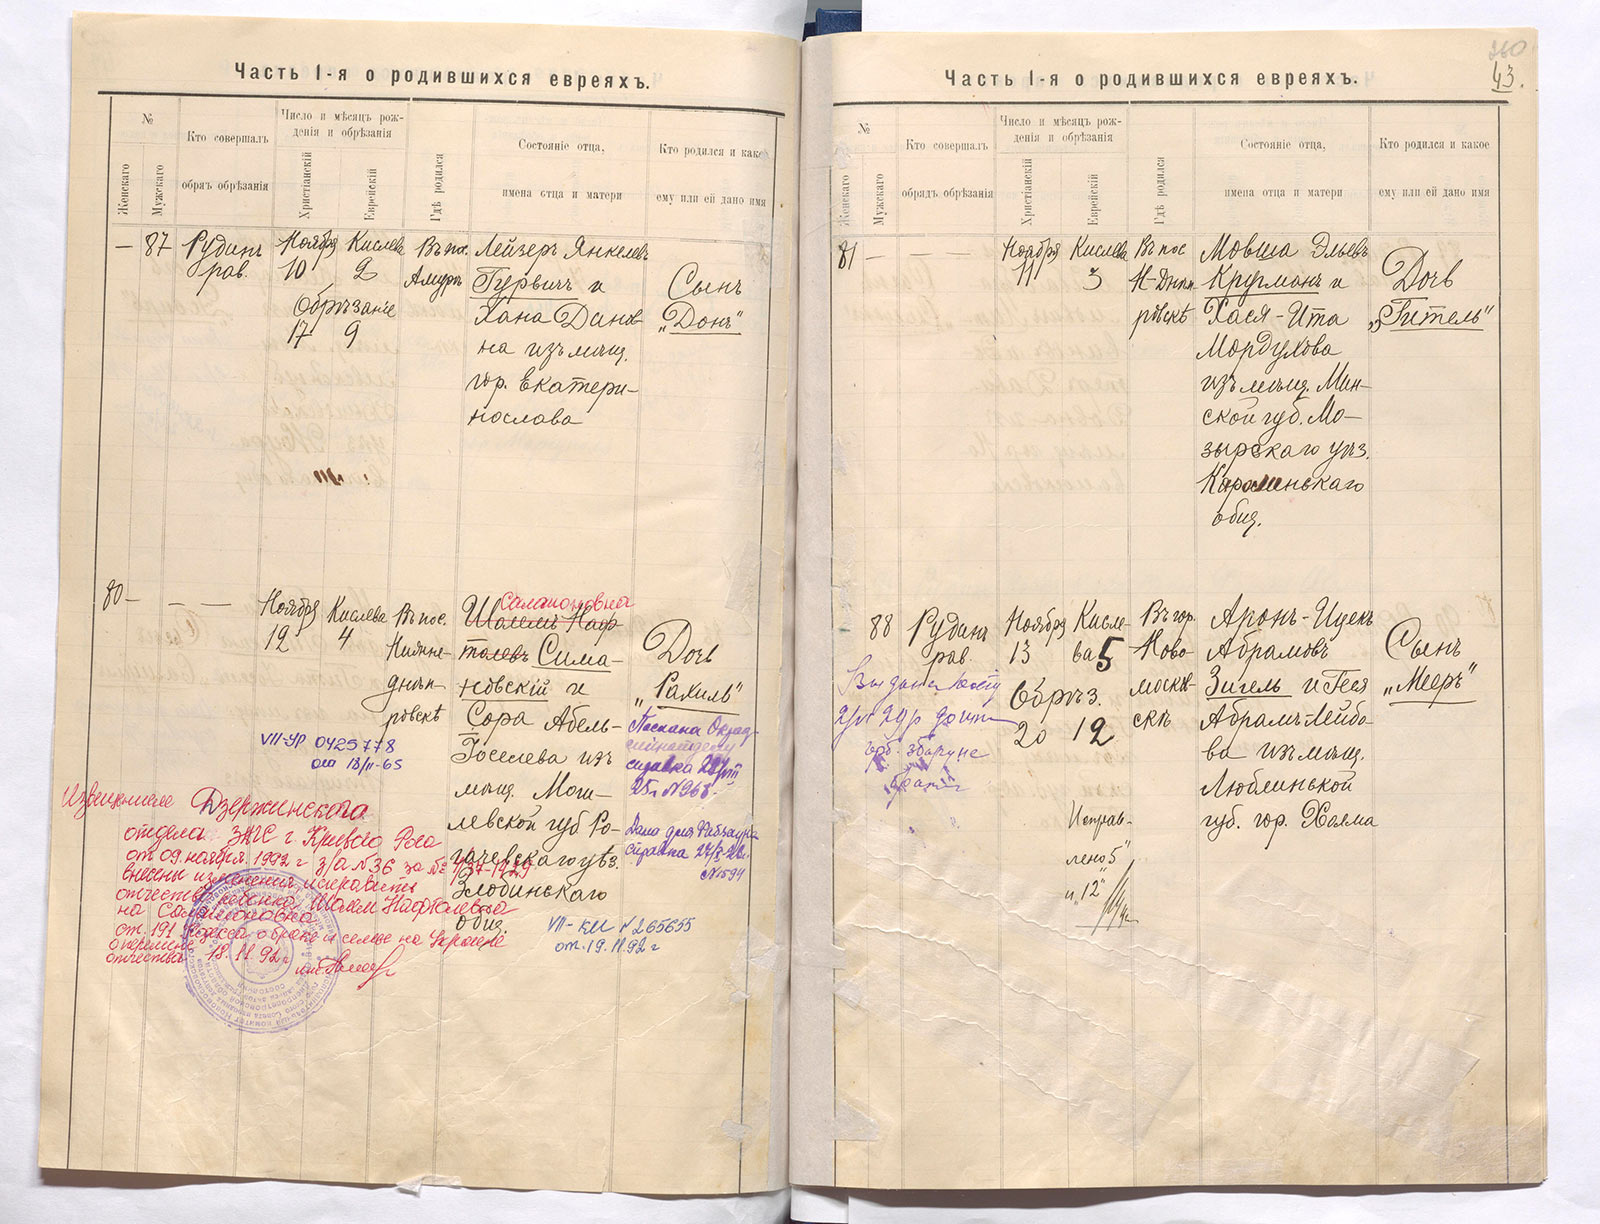 Часть 1-я о родившихся евреяхъ.
№
Женскаго
Мужскаго
Кто совершалъ
обрядъ обрѣзанія
Число и мѣсяцъ рож-
денія и обрѣзанія
Христіанскій
Еврейскій
Гдѣ родился
Состояніе отца,
имена отца и матери
Кто родился и какое
ему или ей дано имя
— 87
Рудинъ
рав.
Ноября
10
Кислева
2
Обрѣзаніе
17 9
Въ пос.
Амуръ
Лейзеръ Янкелевъ
Гурвичъ и
Хана Данов-
на изъ мѣщ.
гор. Екатери-
нослава
Сынъ
„Донъ"
80 —
— —
Ноября
12
Кислева
4
Въ пос.
Нижне-
днѣп-
ровскѣ
Саламоновна
Шолемъ Наф-
талевъ Сима-
новскій и
Сора Абель-
Іоселева изъ
мѣщ. Моги-
левской губ Ро-
гачевскаго уѣз.
Злобинскаго
общ.
Дочь
„Рахиль"
справка
25г N968.
справка
N1594
VII-УР 0425778
от 13/II-65
Извещение Дзержинского
отдела ЗАГС г. Кривого Рога
от 09 ноября 1992 г з/а N36 за № 1/37-1929
внесены изменения, исправить
отчество ребенка, Шолем Нафталевна
на Саламоновна
ст. 191 Кодекса о браке и семье на Украине
о перемене
отчества 18.11.92 г
VII-КИ N265655
от. 19.11.92 г
Часть 1-я о родившихся евреяхъ.
43.
№
Женскаго
Мужскаго
Кто совершалъ
обрядъ обрѣзанія
Число и мѣсяцъ рож-
денія и обрѣзанія
Христіанскій
Еврейскій
Гдѣ родился
Состояніе отца,
имена отца и матери
Кто родился и какое
ему или ей дано имя
81 — — —
Ноября
11
Кислева
3
Въ пос
Н-Днѣп-
ровскѣ
Мовша Эльевъ
Кругманъ и
Хася-Ита
Мордухова
изъ мѣщ. Мин-
ской губ. Мо-
зырскаго уѣз.
Каролинскаго
общ.
Дочь
„Гитель"
88
Рудинъ
рав.
Ноября
13
Кисле-
ва 5
Обрѣз.
20 12
Въ гор.
Ново-
москов-
скѣ
Аронъ-Ицекъ
Абрамовъ
Зигель и Геся
Абрамъ-Лейбо-
ва изъ мѣщ.
Люблинской
губ. гор. Холма
Сынъ
„Мееръ"
Исправ-
лено „5"
и „12"